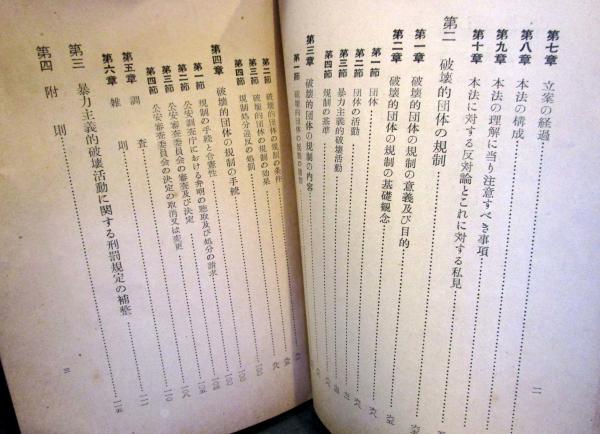 第七章 立案の経過
第八章 本法の構成
第九章 本法の理解に当り注意すべき事項
第十章 本法に対する反対論とこれに対する私見
第二 破壊的団体の規制
第一章 破壊的団体の規制の意義及び目的
第二章 破壊的団体の規制の基礎観念
第一節 団体
第二節 団体の活動
第三節 暴力主義的破壊活動
第四節 規制の基準
第三章 破壊的団体の規制の内容
第一節 破壊的団体の規制の種類
第二節 破壊的団体の規制の条件
第三節 破壊的団体の規制の効果
第四節 規制処分違反の処罰
第四章 破壊的団体の規制の手続
第一節 規制の手続と合憲性
第二節 公安調査庁における弁明の聴取及び処分の請求
第三節 公安審査委員会の審査及び決定
第四節 公安審査委員会の決定の取消又は変更
第五章 調査
第六章 雑則
第三 暴力主義的破壊活動に関する刑罰規定の補整
第四 附則